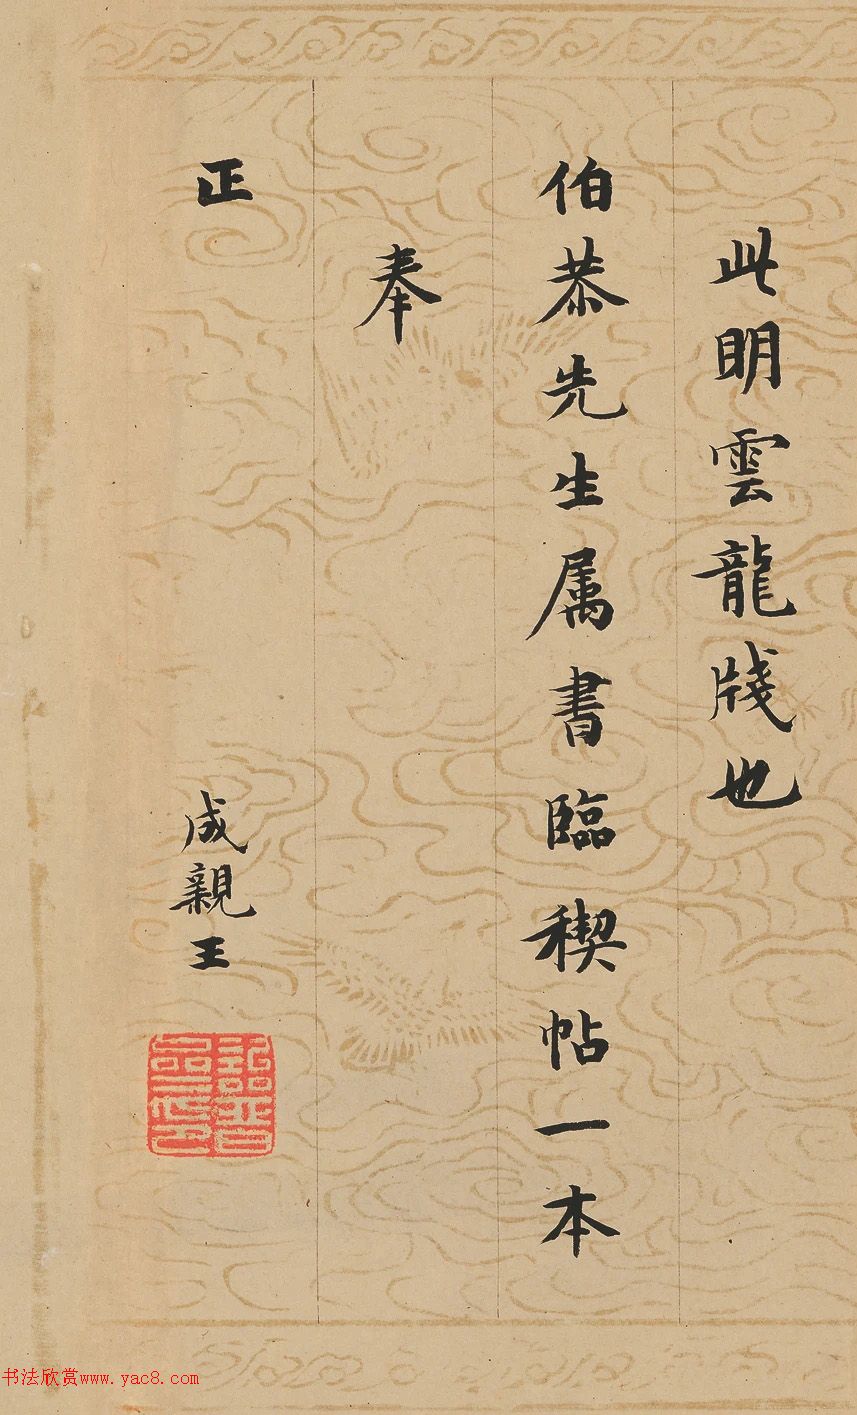 此明雲龍牋也
伯恭先生属書臨稧帖一本
奉
正
成親王
书法欣赏www.yac8.com